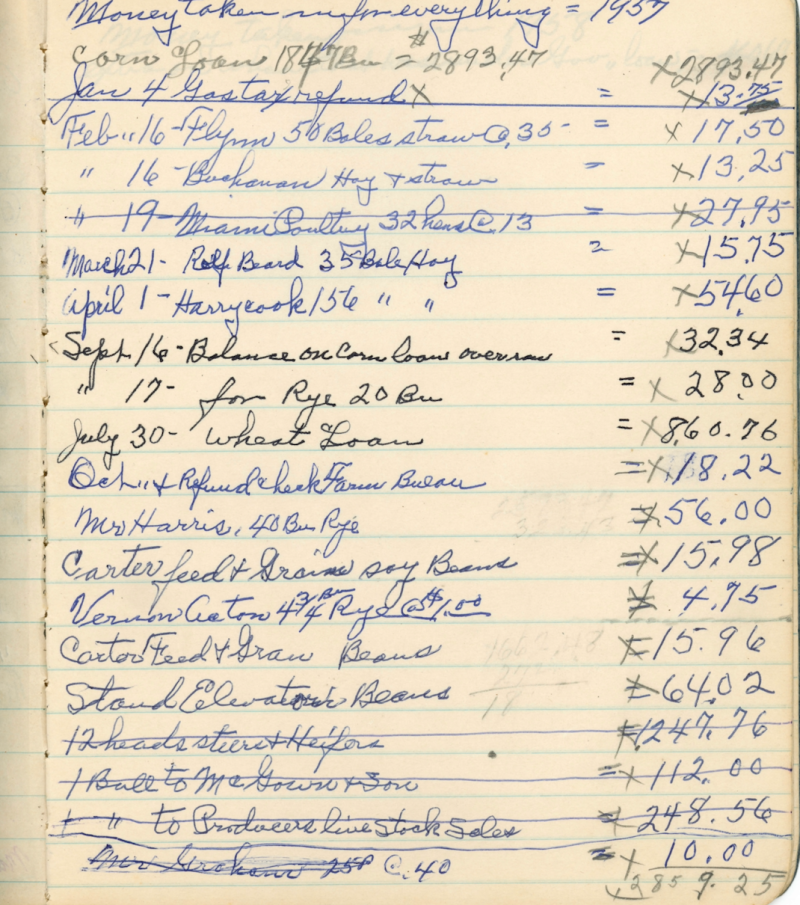 Money taken in for everything = 1957
Corn Loan 1847 Bu = $2893.47 x 2893.47
Jan 4 Gas tax refund x = x 13.75
Feb " 16 - Flynn 50 Bales straw @ .35 - = x 17.50
" 16 - Buchanan Hay & straw = x 13.25
" 19 - Miami Poultry 32 hens @ .13 = x 27.95
March 21 - Rolf Beard 35 Bale Hay = x 15.75
April 1 - Harry cook 156 " " = x 54.60
Sept 16 - Balance on Corn loan over run = x 32.34
" 17 - for Rye 20 Bu = x 28.00
July 30 - Wheat Loan = x 860.76
Oct " & Refund check Farm Bueau = x 18.22
Mr Harris, 40 Bu Rye = x 56.00
Carter feed & Grain soy Beans = x 15.98
Vernon Acton 4 3/4 Bu Rye @ $1.00 = x 4.75
Carter Feed & Gran Beans = x 15.96
Stand Elevator Beans = x 64.02
12 heads steers & Heifers = x 1247.76
1 Bull to McGown & Son = x 112.00
1 " to Producers live stock Sales = x 248.56
Mr 25# @ .40 = x 10.00
x 2859.25